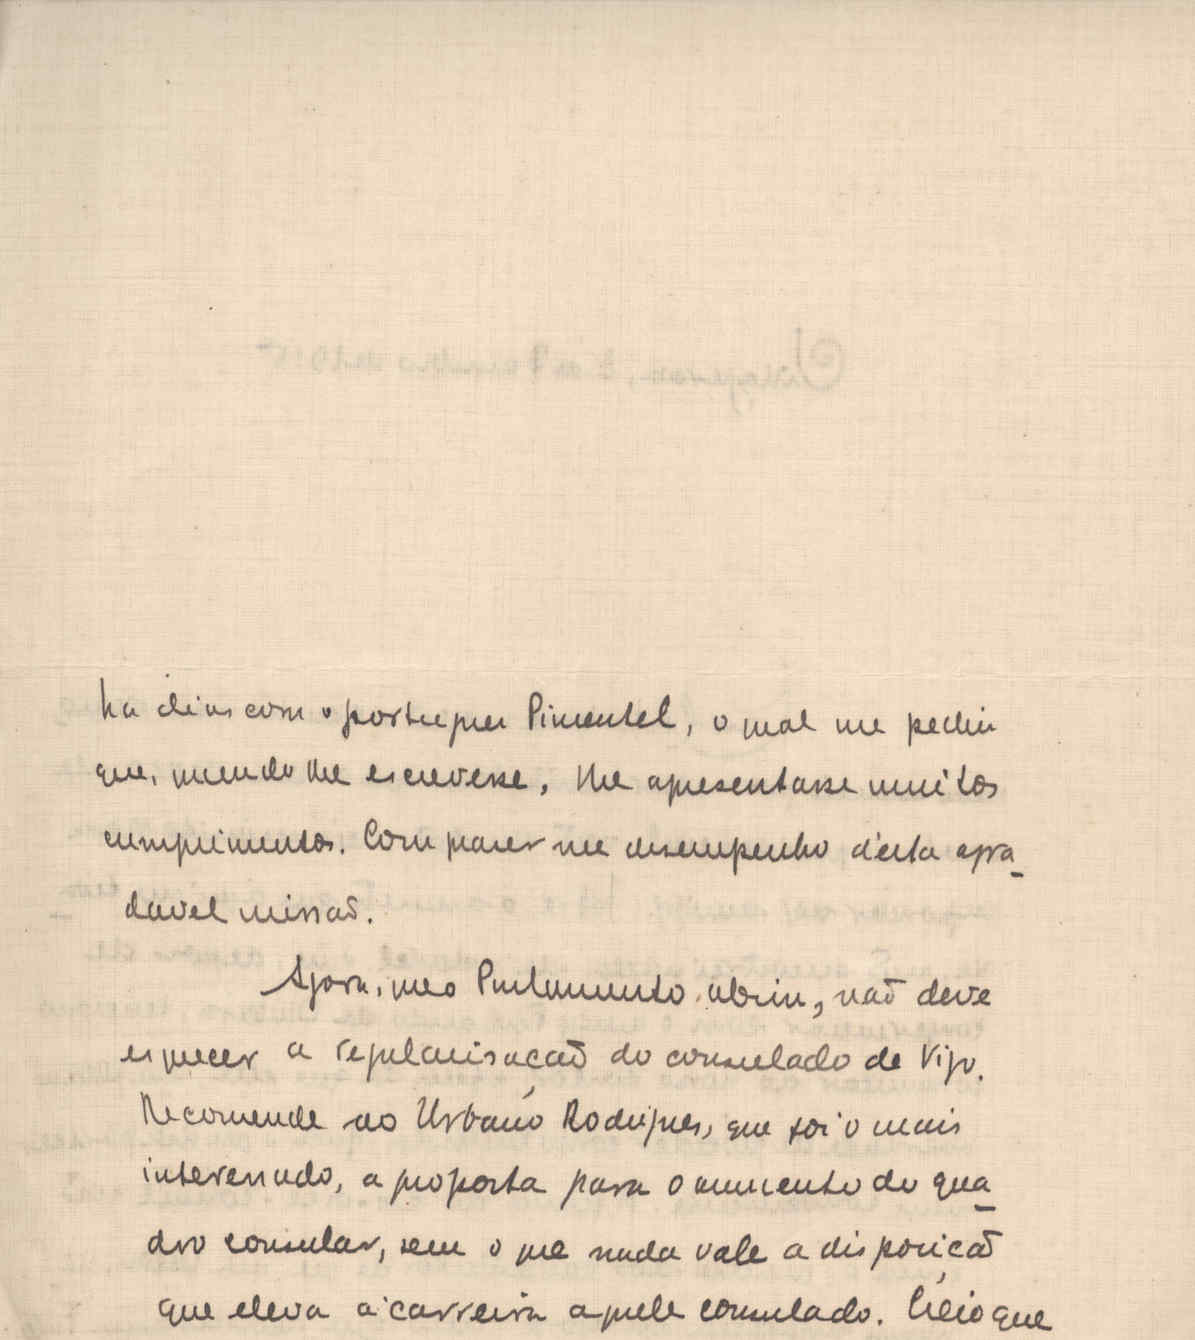 ha dias com o portuguez Pimentel, o qual me pediu
que, quando lhe escrevesse, lhe apresentasse muitos
cumprimentos. Com prazer me desempenho d'esta agra-
davel missaõ.
Agora, que o Parlamento abriu, naõ deve
esquecer a regularisacaõ do consulado de Vigo.
Recomende ao Urbano Rodrigues, que foi o mais
interessado, a proposta para o aumento do qua-
dro consular, sem o que nada vale a disposicaõ
que eleva á carreira aquele consulado. Creio que